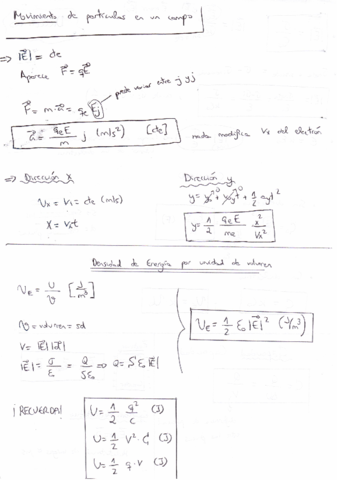 Movimiento de partículas en un campo
⇒ |E⃗| = cte
Aparece F⃗ = qE⃗
puede variar entre j y -j
F⃗ = m·a⃗ = q_e E j
a⃗ = q_e E / m j (m/s²) [cte]
nada modifica V_x del electrón
⇒ Dirección X
V_x = V_1 = cte (m/s)
X = V_x t
Dirección y
y = y_0 + v_0y t + 1/2 a_y t²
y = 1/2 q_e E / m_e x² / V_x²
Densidad de Energía por unidad de volumen
U_E = U / V [J/m³]
V = volumen = sd
V = |E⃗| |d⃗|
|E⃗| = σ/ε_0 = Q/Sε_0 ⇒ Q = S ε_0 |E⃗|
U_E = 1/2 ε_0 |E⃗|² (J/m³)
¡RECUERDA!
U = 1/2 q²/C (J)
U = 1/2 V²·C (J)
U = 1/2 q·V (J)